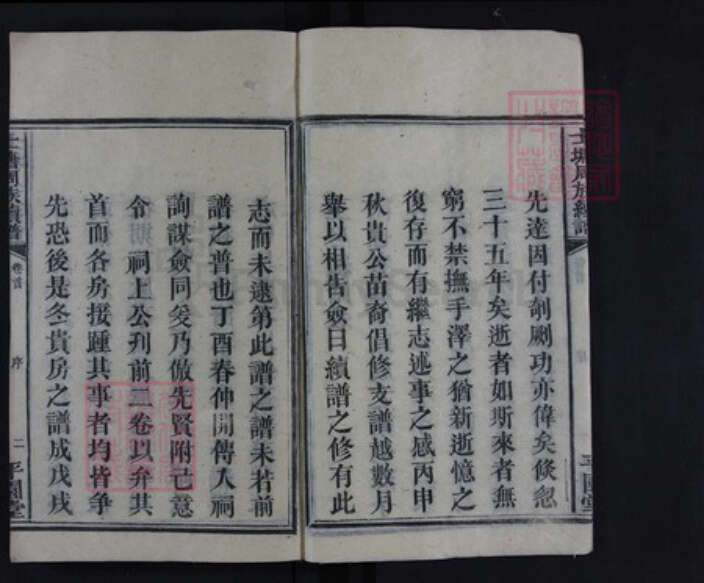 先達因付剞劂功亦偉矣倐忽
三十五年矣逝者如斯來者無
窮不禁撫手澤之猶新逝憶之
復存而有繼志述事之感丙申
秋貴公苗裔倡修支譜越數月
舉以相告僉曰續譜之修有此
志而未逮第此譜之譜未若前
譜之普也丁酉春仲開傳人祠
詢謀僉同爰乃倣先賢附己意
令期祠上公刋前二卷以弁其
首而各房接踵其事者均皆争
先恐後是冬貴房之譜成戊戌
周族續譜
卷首
序
二